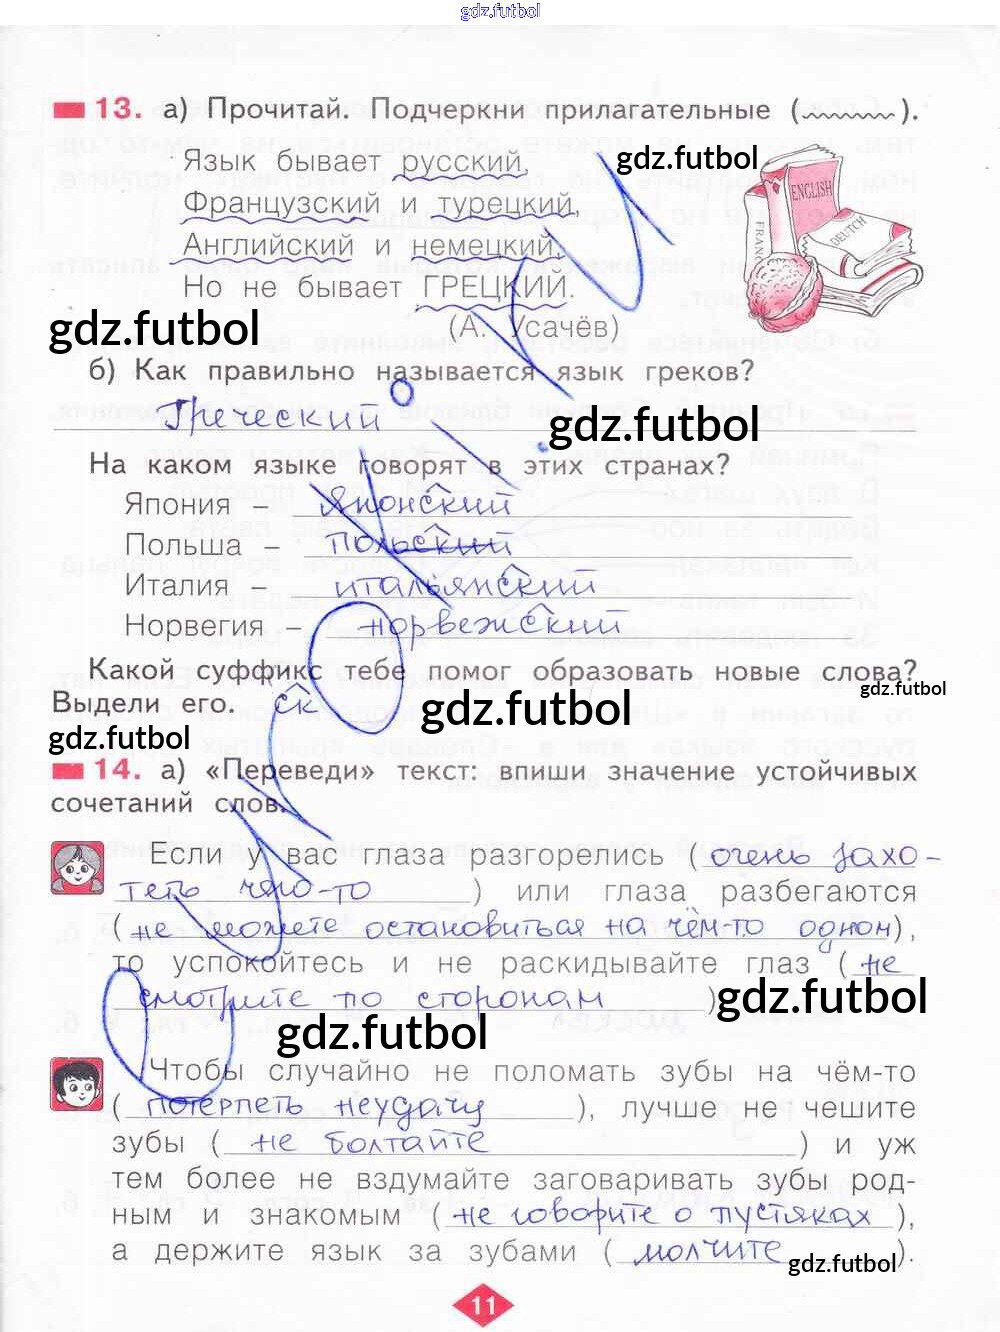 gdz.futbol
13. а) Прочитай. Подчеркни прилагательные ( ).
Язык бывает русский,
Французский и турецкий,
Английский и немецкий,
Но не бывает ГРЕЦКИЙ.
(А. Усачёв)
gdz.futbol
ENGLISH
DEUTCH
gdz.futbol
б) Как правильно называется язык греков?
Греческий
gdz.futbol
На каком языке говорят в этих странах?
Япония – японский
Польша – польский
Италия – итальянский
Норвегия – норвежский
Какой суффикс тебе помог образовать новые слова?
gdz.futbol
Выдели его. ск
gdz.futbol
gdz.futbol
14. а) «Переведи» текст: впиши значение устойчивых
сочетаний слов.
Если у вас глаза разгорелись (очень захо-
теть чего-то) или глаза разбегаются
(не можете остановиться на чём-то одном),
то успокойтесь и не раскидывайте глаз (не
смотрите по сторонам)
gdz.futbol
gdz.futbol
Чтобы случайно не поломать зубы на чём-то
(потерпеть неудачу), лучше не чешите
зубы (не болтайте) и уж
тем более не вздумайте заговаривать зубы род-
ным и знакомым (не говорите о пустяках),
а держите язык за зубами (молчите).
gdz.futbol
11